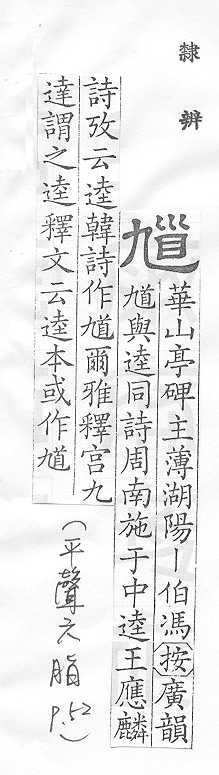 隸辨
馗
華山亭碑主薄湖陽丨伯馮按廣韻
馗與逵同詩周南施于中逵王應麟
詩攷云逵韓詩作馗爾雅釋宮九
達謂之逵釋文云逵本或作馗
(平聲六脂
P.52)